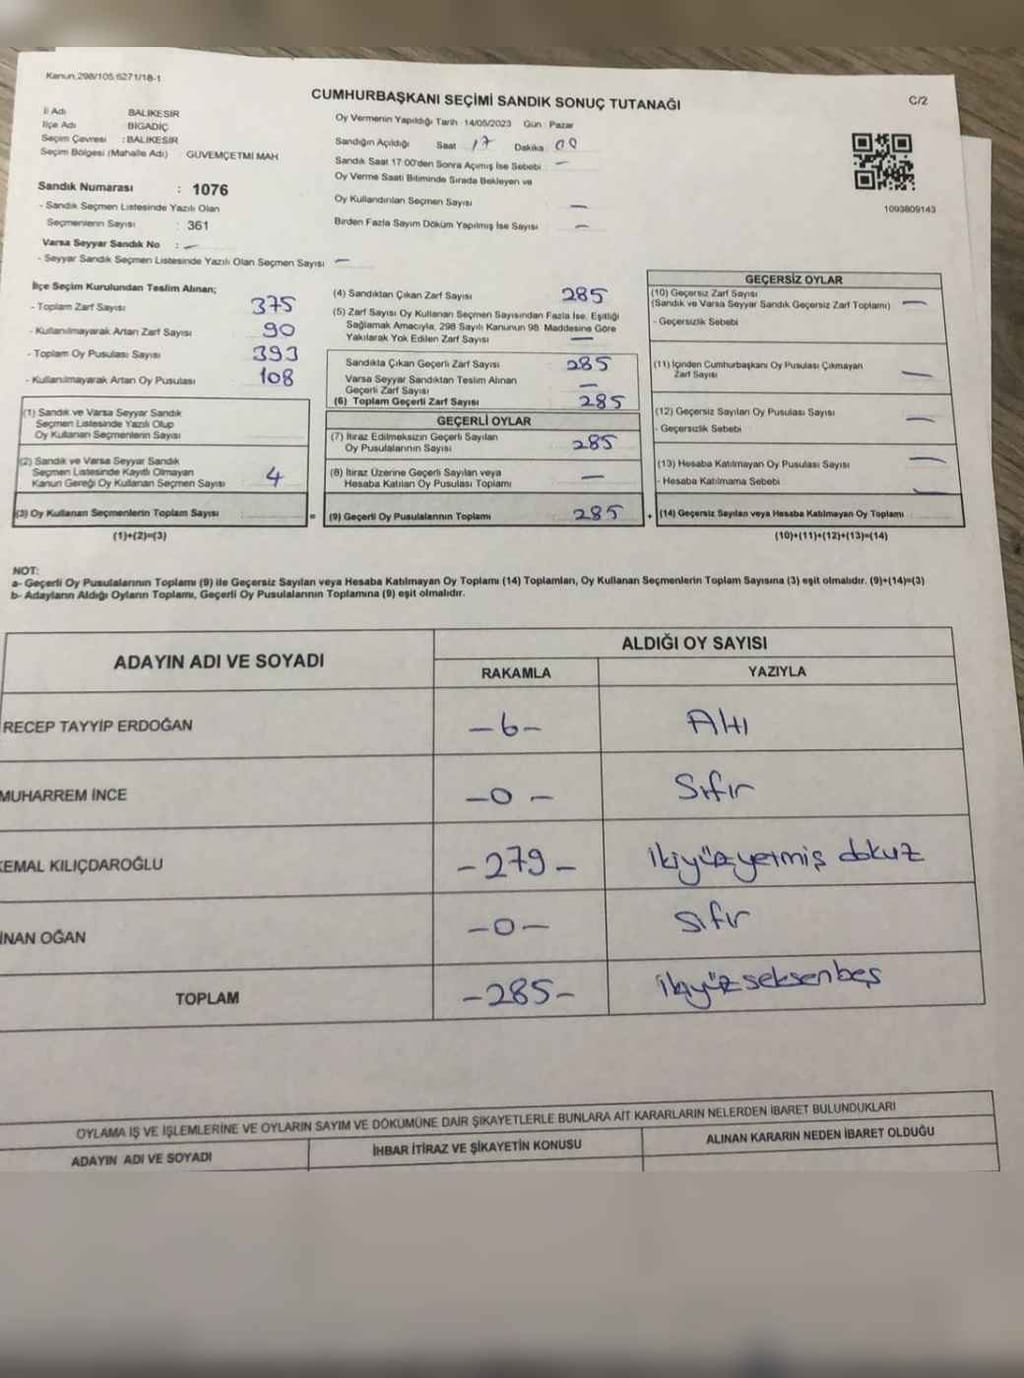 Kanun,298/105,6271/18-1
CUMHURBAŞKANI SEÇİMİ SANDIK SONUÇ TUTANAĞI
C/2
İl Adı BALIKESİR
İlçe Adı BİGADİÇ
Seçim Çevresi : BALIKESİR
Seçim Bölgesi (Mahalle Adı) GÜVEMÇETMİ MAH
Sandık Numarası : 1076
- Sandık Seçmen Listesinde Yazılı Olan
Seçmenlerin Sayısı : 361
Varsa Seyyar Sandık No : -
- Seyyar Sandık Seçmen Listesinde Yazılı Olan Seçmen Sayısı -
Oy Vermenin Yapıldığı Tarih : 14/05/2023 Gün : Pazar
Sandığın Açıldığı Saat 17 Dakika 00
Sandık Saat 17:00'den Sonra Açımış İse Sebebi -
Oy Verme Saati Bitiminde Sırada Bekleyen ve
Oy Kullandırılan Seçmen Sayısı -
Birden Fazla Sayım Döküm Yapılmış İse Sayısı -
1093809143
İlçe Seçim Kurulundan Teslim Alınan;
- Toplam Zarf Sayısı 375
- Kullanılmayarak Artan Zarf Sayısı 90
- Toplam Oy Pusulası Sayısı 393
- Kullanılmayarak Artan Oy Pusulası 108
(1) Sandık ve Varsa Seyyar Sandık
Seçmen Listesinde Yazılı Olup
Oy Kullanan Seçmenlerin Sayısı
(2) Sandık ve Varsa Seyyar Sandık
Seçmen Listesinde Kayıtlı Olmayan
Kanun Gereği Oy Kullanan Seçmen Sayısı 4
(3) Oy Kullanan Seçmenlerin Toplam Sayısı
(1)+(2)=(3)
(4) Sandıktan Çıkan Zarf Sayısı 285
(5) Zarf Sayısı Oy Kullanan Seçmen Sayısından Fazla İse, Eşitliği
Sağlamak Amacıyla, 298 Sayılı Kanunun 98. Maddesine Göre
Yakılarak Yok Edilen Zarf Sayısı -
Sandıkta Çıkan Geçerli Zarf Sayısı 285
Varsa Seyyar Sandıktan Teslim Alınan
Geçerli Zarf Sayısı -
(6) Toplam Geçerli Zarf Sayısı 285
GEÇERLİ OYLAR
(7) İtiraz Edilmeksizin Geçerli Sayılan
Oy Pusulalarının Sayısı 285
(8) İtiraz Üzerine Geçerli Sayılan veya
Hesaba Katılan Oy Pusulası Toplamı -
= (9) Geçerli Oy Pusulalarının Toplamı 285
GEÇERSİZ OYLAR
(10) Geçersiz Zarf Sayısı
(Sandık ve Varsa Seyyar Sandık Geçersiz Zarf Toplamı) -
- Geçersizlik Sebebi
(11) İçinden Cumhurbaşkanı Oy Pusulası Çıkmayan
Zarf Sayısı -
(12) Geçersiz Sayılan Oy Pusulası Sayısı -
- Geçersizlik Sebebi
(13) Hesaba Katılmayan Oy Pusulası Sayısı -
- Hesaba Katılmama Sebebi -
+ (14) Geçersiz Sayılan veya Hesaba Katılmayan Oy Toplamı
(10)+(11)+(12)+(13)=(14)
NOT:
a- Geçerli Oy Pusulalarının Toplamı (9) ile Geçersiz Sayılan veya Hesaba Katılmayan Oy Toplamı (14) Toplamları, Oy Kullanan Seçmenlerin Toplam Sayısına (3) eşit olmalıdır. (9)+(14)=(3)
b- Adayların Aldığı Oyların Toplamı, Geçerli Oy Pusulalarının Toplamına (9) eşit olmalıdır.
ADAYIN ADI VE SOYADI ALDIĞI OY SAYISI
RAKAMLA YAZIYLA
RECEP TAYYİP ERDOĞAN -6- Altı
MUHARREM İNCE -0- Sıfır
KEMAL KILIÇDAROĞLU -279- ikiyüzyetmiş dokuz
İNAN OĞAN -0- sıfır
TOPLAM -285- ikiyüzseksenbeş
OYLAMA İŞ VE İŞLEMLERİNE VE OYLARIN SAYIM VE DÖKÜMÜNE DAİR ŞİKAYETLERLE BUNLARA AİT KARARLARIN NELERDEN İBARET BULUNDUKLARI
ADAYIN ADI VE SOYADI İHBAR İTİRAZ VE ŞİKAYETİN KONUSU ALINAN KARARIN NEDEN İBARET OLDUĞU